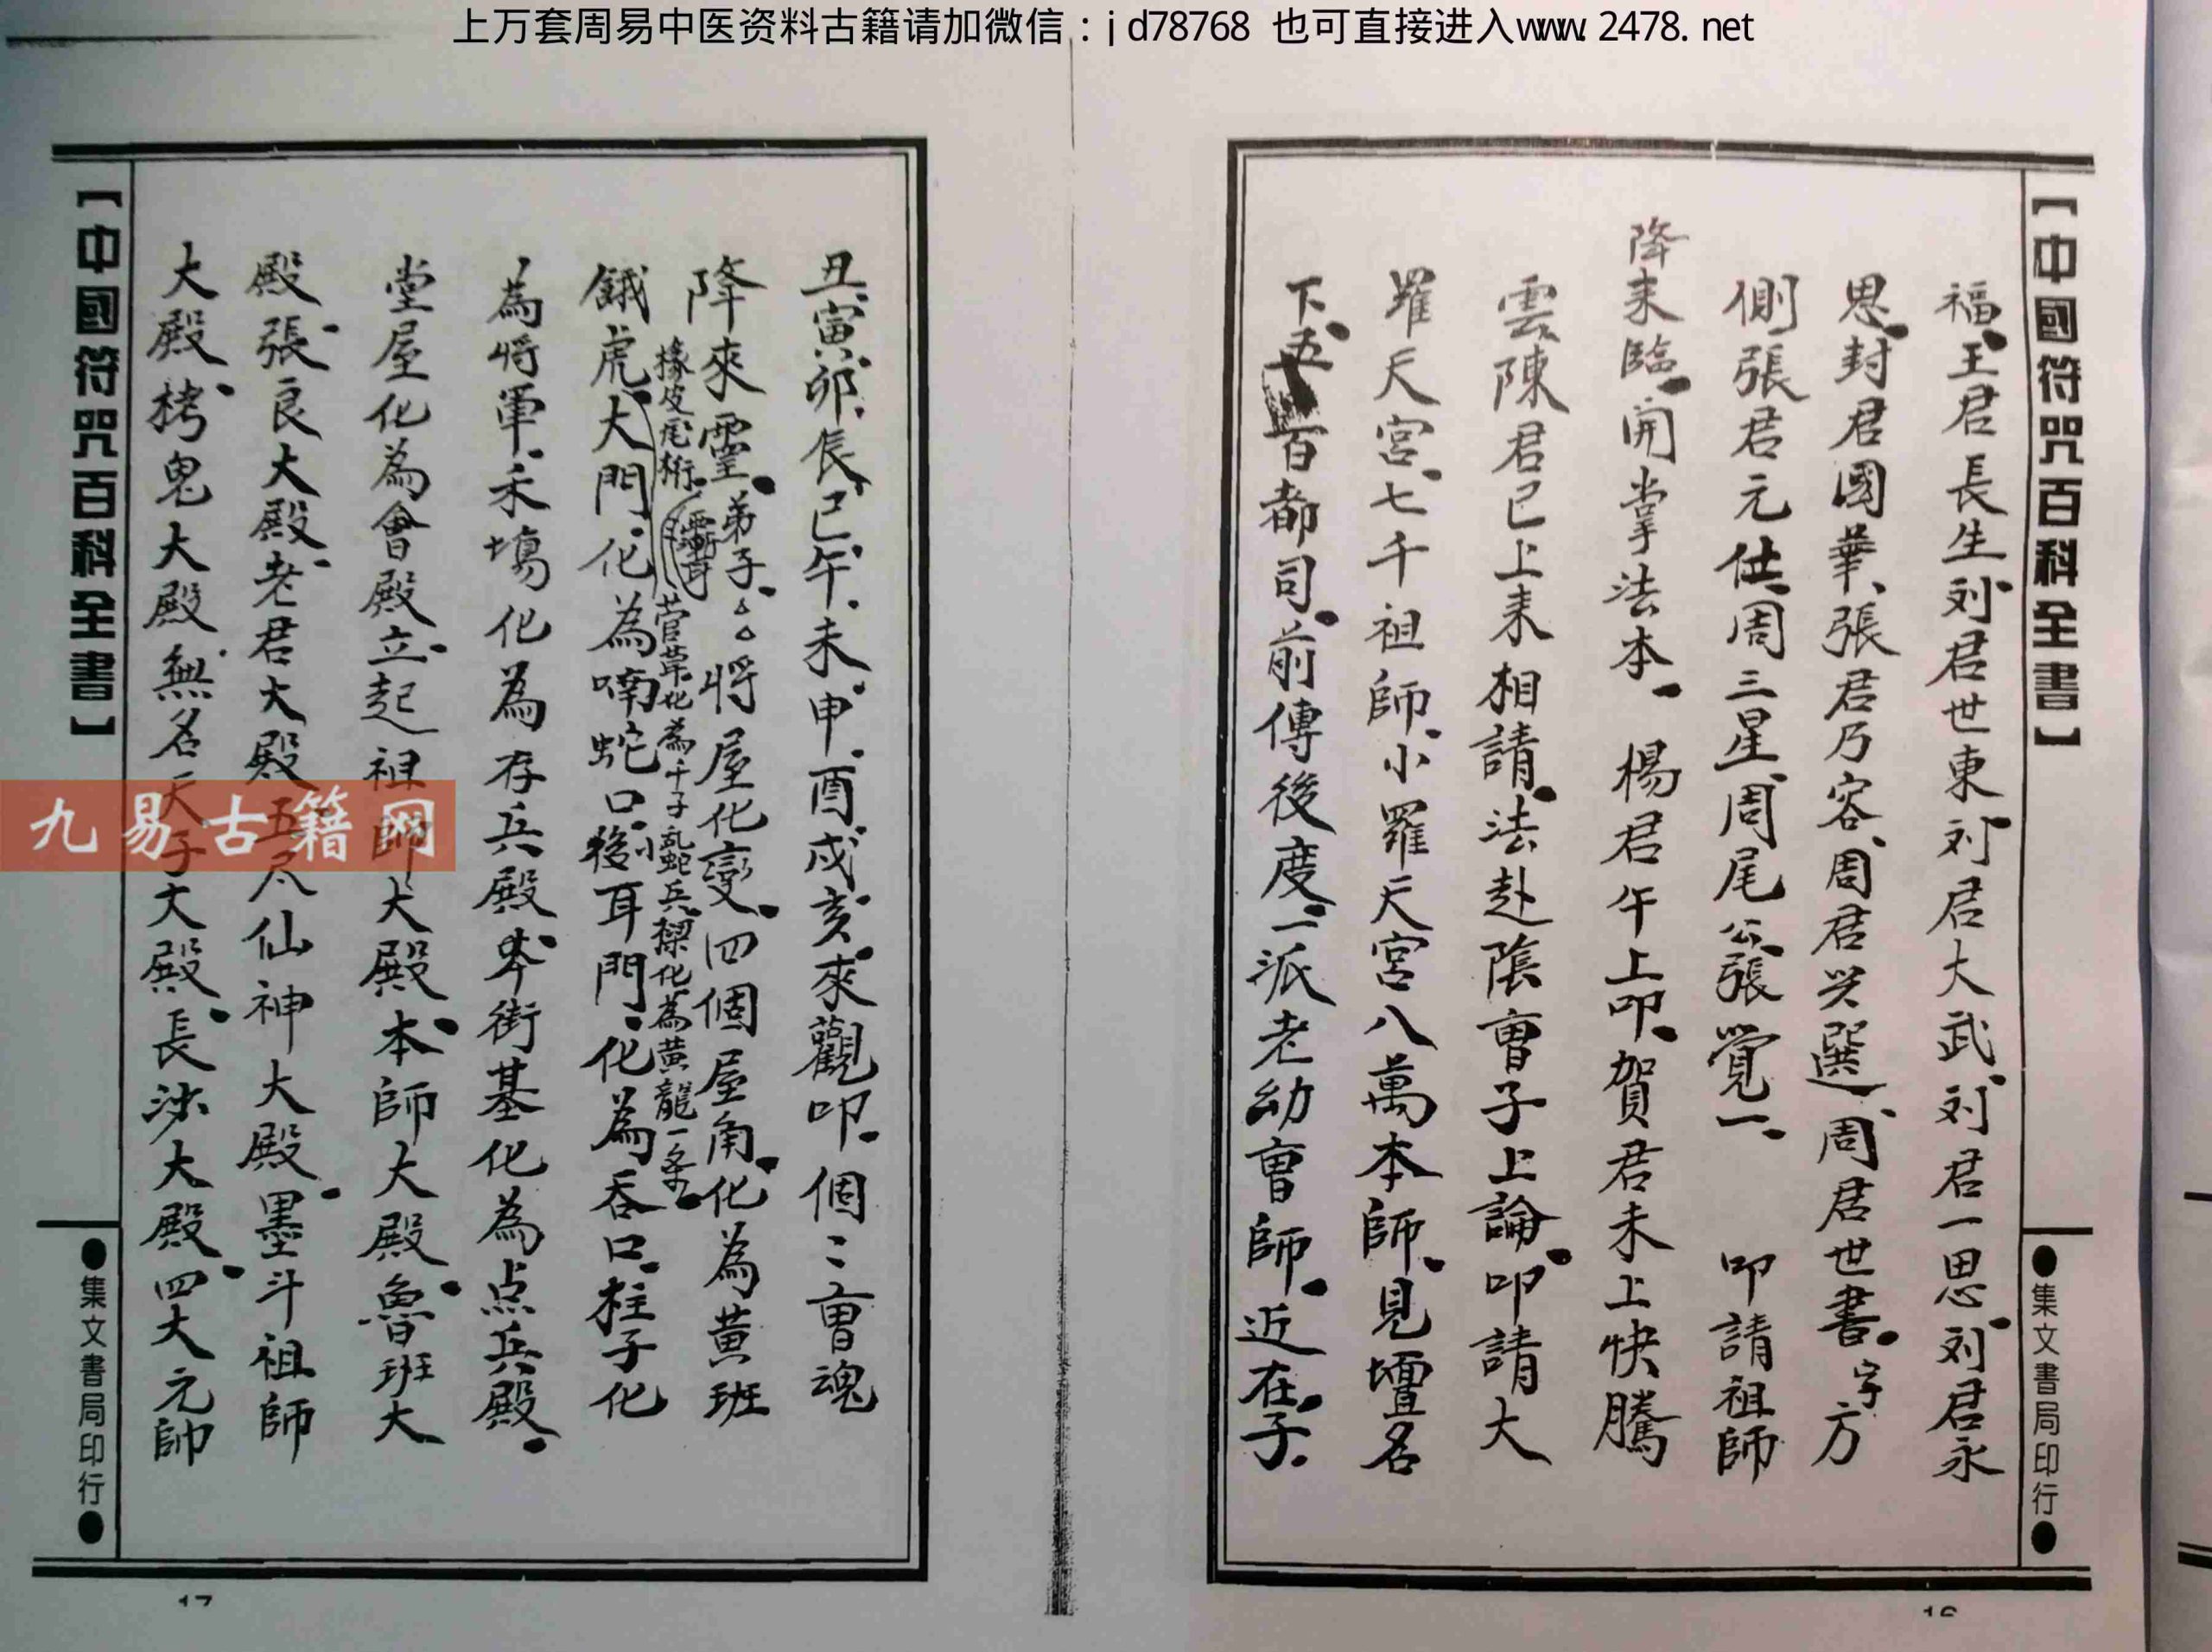 上万套周易中医资料古籍请加微信：jd78768 也可直接进入www.2478.net
【中國符咒百科全書】
●集文書局印行●
福、王君長生、刘君世東、刘君大武、刘君一思、刘君永
思、封君國華、張君乃容、周君兴選、周君世書。字方
側張君元仕、周三星、周尾公、張覺一、叩請祖師
降来臨、開掌法本、楊君午上叩、賀君未上快騰
雲、陳君已上来相請、法赴陰曺子上論、叩請大
羅天宮、七千祖師、小羅天宮八萬本師、見壇名
下、五百都司、前傳後度、二派老幼曺師、近在、子、
16
【中國符咒百科全書】
●集文書局印行●
丑、寅、卯、辰、巳、午、未、申、酉、戌、亥、來觀叩、個〻曺魂
降來靈、弟子、△△將屋化變、四個屋角、化為黃班
椽皮尾桁、
化為千子乱蛇小兵、樑化為黃龍一条、
餓虎、大門、化為喃蛇口、後耳門、化為吞口、柱子化
為將軍、禾塲化為存兵殿、岑街基化為点兵殿、
堂屋化為會殿、立起祖師大殿、本師大殿、魯班大
殿、張良大殿、老君大殿、五尺仙神大殿、墨斗祖師
大殿、拷鬼大殿、無名天子大殿、長沙大殿、四大元帥
17
九易古籍网